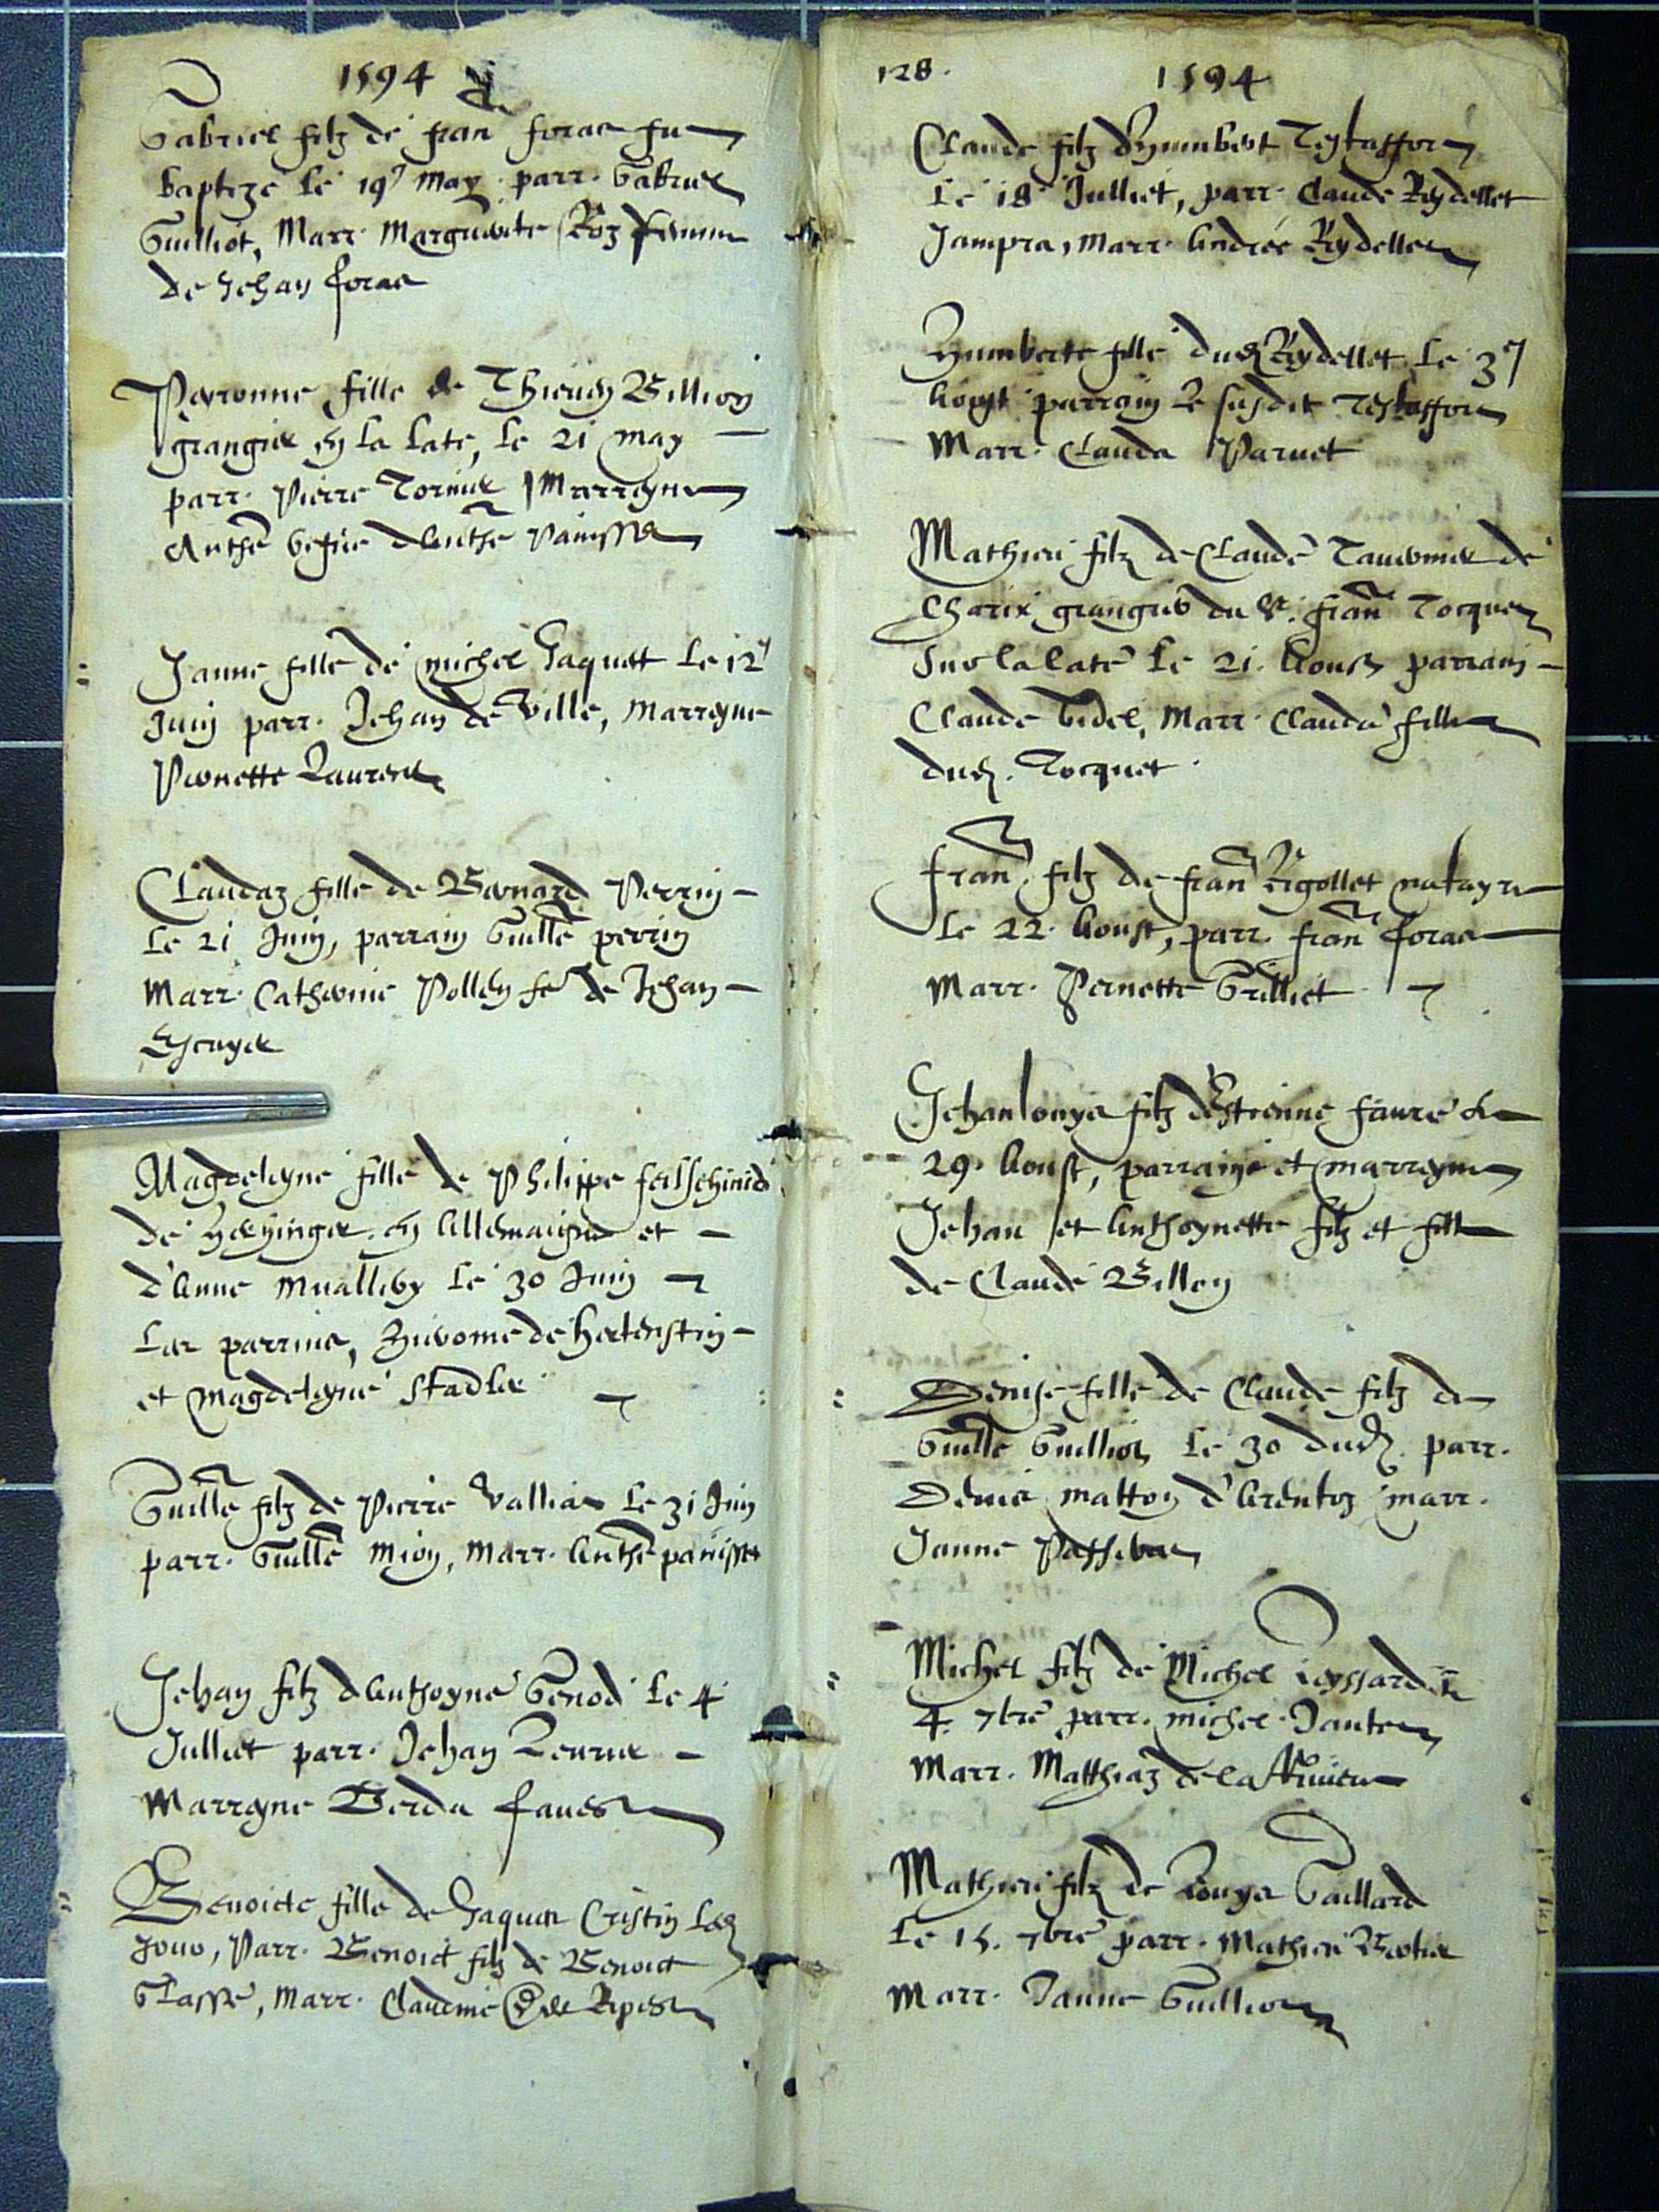 1594
Gabriel filz de fran forae fu
baptizé le 19 May parr. Gabriel
Guilliot, Marr. Marguerite Roz femme
de Jehan forae
Peronne fille de Thieudy Billion
grangier en la late, le 21 may
parr. Pierre Tornier Marreyne
Anthe d'Anthe Panissa
Janne fille de michel Jaquet le 12
Juin parr. Jehan de Ville, Marreyne
Pernette Laurent
Claudaz fille de Bernard Perrin
le 21 Juin, parrain Guille perrin
Marr. Catherine Pollen fe de Jehan
Magdeleyne fille de Philippe
de en Allemaigne et
d'Anne le 30 Juin
Les parrins, de Hertenstein
et Magdeleyne Stadler
Guille filz de Pierre Vallia le 31 Juin
parr. Guille Mion, Marr. Anthe panissa
Jehan filz d'Anthoyne Genod le 4
Julliet parr. Jehan
Marreyne Berda faure
Benoicte fille de Jaques Cristin led
Jour, Parr. Benoict filz de Benoict
Classe, Marr. Claudine
128.
1594
Claude filz d'Hymbert Testaffort
Le 18 Julliet, parr. Claude Reydellet
Jampra, Marr. Andrée Reydellet
Humberte fille dud Reydellet le 3
Aougt parrain le susdit Testaffort
Marr. Clauda Paruet
Mathieu filz de Claude Tavernier de
Charix grangier du Sr. fran Tocquet
sur la late le 21. Aoust parrain
Claude Bidel, Marr. Clauda fille
dud. Tocquet.
fran filz de fran Rigollet notayre
le 22. Aoust, parr. fran forae
Marr. Pernette Grilliet
Jehanlouys filz d'Estienne faure le
29. Aoust, parrains et marreyne
Jehan et Anthoynette filz et fille
de Claude Billon
Denise fille de Claude filz de
Guille Guilliot le 30 dud. parr.
Denis matton d'Arentoz marr.
Janne
Michel filz de Michel Leyssard le
4. 7bre parr. michel Jantet
Marr. Matthiaz de la Riviere
Mathieu filz de Louys Gaillard
le 15. 7bre parr. Mathieu Bertier
Marr. Janne Guilliot